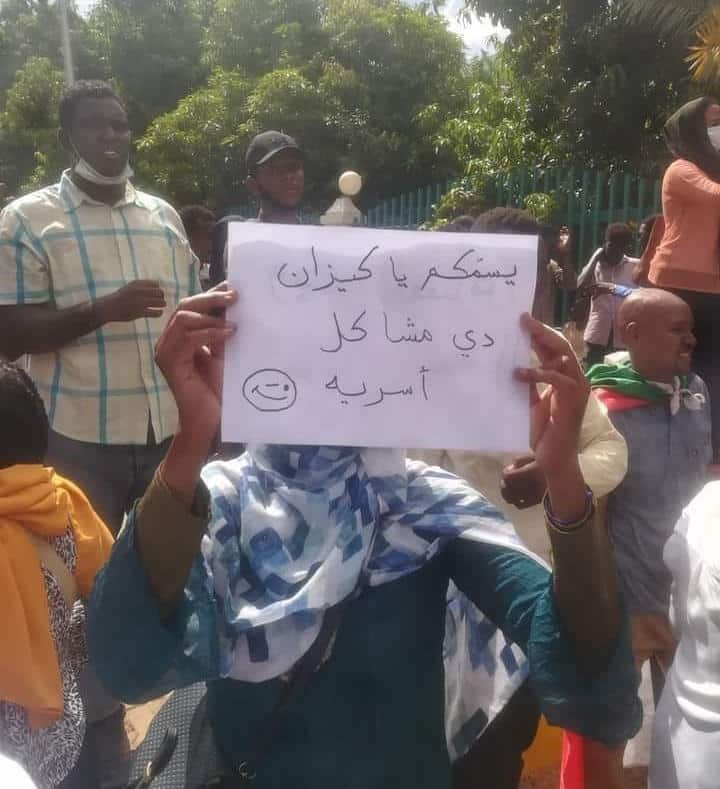 يسمّكم يا كيزان
دي مشاكل
أسريه